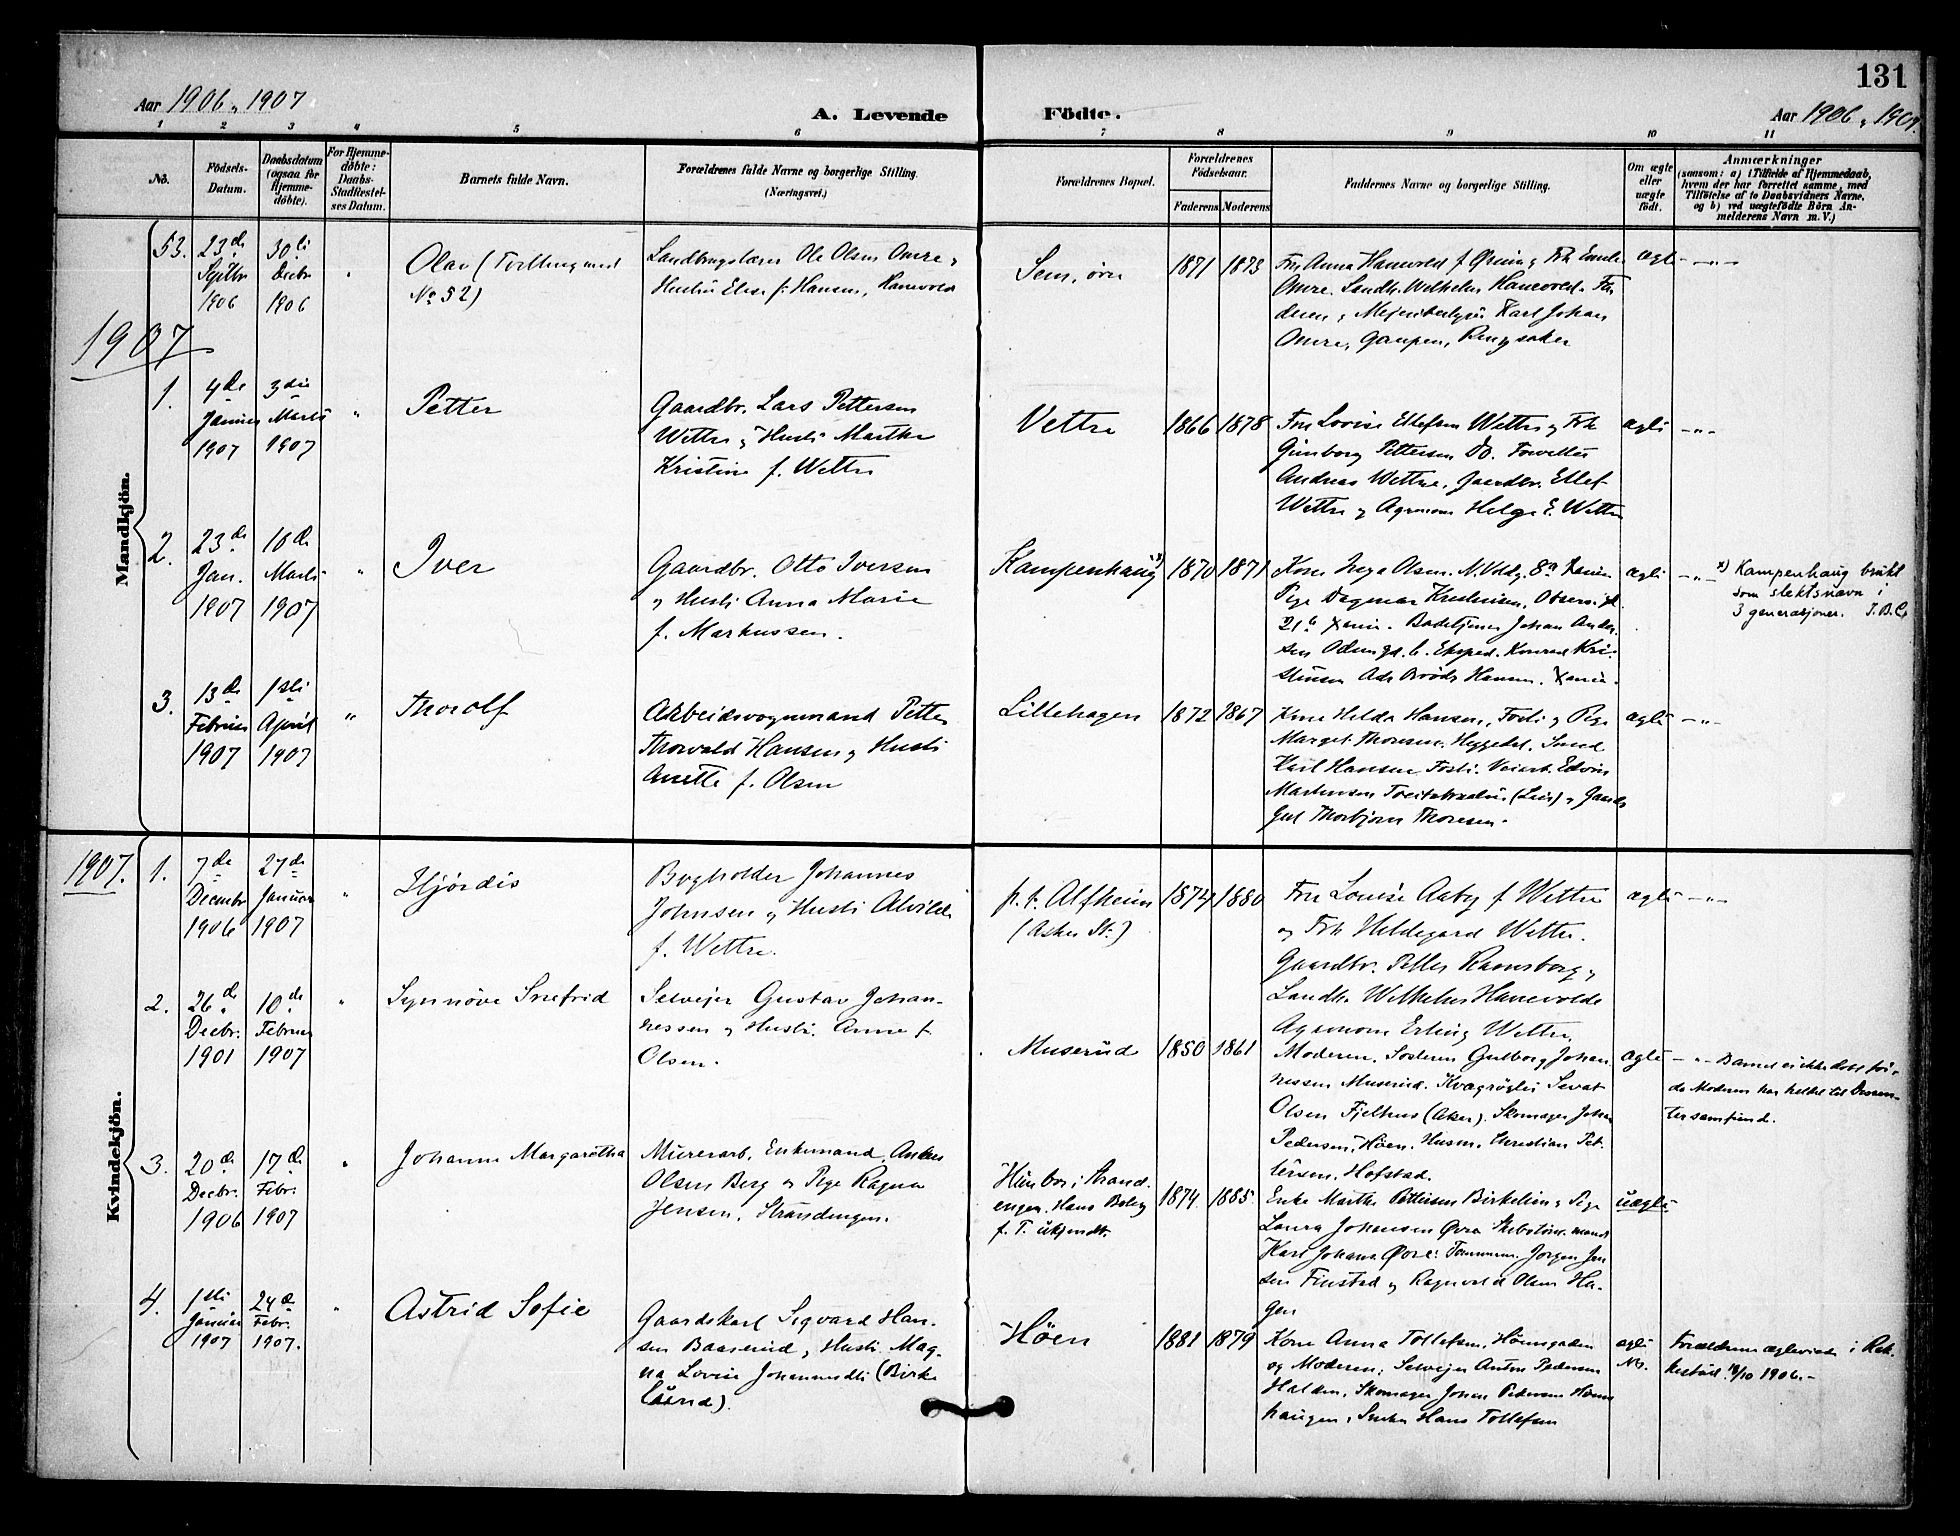 131
Aar 1906, 1907
A. Levende
Fødte.
Aar 1906, 1907.
1 2 3 4 5 6 7 8 9 10 11
No.
Födsels-Datum.
Daabsdatum (ogsaa for Hjemmedöbte).
For Hjemmedöbte: Daabs-Stadfæstelses Datum.
Barnets fulde Navn.
Forældrenes fulde Navne og borgerlige Stilling.
(Næringsvei.)
Forældrenes Bopæl.
Forældrenes Födselsaar.
Faderens Moderens
Faddernes Navne og borgerlige Stilling.
Om ægte eller uægte født.
Anmærkninger
(saasom: a) i Tilfælde af Hjemmedaab,
hvem der har forrettet samme, med
Tilføielse af to Daabsvidners Navne,
og b) ved uægtefödte Börn Anmelderens Navn m. V.)
Mandkjön.
53.
23de Septbr 1906
30te Decbr 1906
Olav (Tvilling med
No 52)
Landbrugslærer Ole Olsen Omre og
Hustru Elise f. Hansen, Hanevold
Sem, øvre
1871 1873
Fru Anna Hanevold f.
Omre. Landh. Wilhelm Hanevold. Fa
deren og Meieribestyrer Karl Johan
Omre, Gaupen, Ringsaker
ægte
1907
1.
4de Januar 1907
3die Marts 1907
Petter
Gaardbr. Lars Pettersen
Wettre og Hustr. Marthe
Kristine f. Wettre
Vettre
1866 1878
Fru Lovise Ellefsen Wettre og Frk
Gunborg Pettersen Do.
Andreas Wettre, Gaardbr. Ellef
Wettre og Agronom Helge E. Wettre
ægte
2.
23de Jan. 1907
10de Marts 1907
Iver
Gaardbr. Otto Iversen
og Hustr. Anna Marie
f. Markussen.
Kampenhaug x)
1870 1871
Olsen. N. Voldg. 8a Xania
Pige Dagmar Kristensen, Observ.gt.
21b Xania. Johan Ander-
sen Odensgd. 6. Eksped. Konrad Kri-
stensen Hansen. Xania.
ægte
x) Kampenhaug brukt
som slektsnavn i
3 generasjoner.
3.
13de Februar 1907
1ste April 1907
Thorolf
Arbeidsvognmand Petter
Thorvald Hansen og Hustr.
Anette f. Olsen
Lillehagen
1872 1867
Kone Hilda Hansen, og Pige
Marget Thoresen. Heggedal. Smed
Karl Hansen Veiarb. Edvin
Martinsen og Gaards
gut Thorbjørn Thoresen.
ægte
Kvindekjön.
1907.
1.
7de Decembr 1906
27de Januar 1907
Hjørdis
Bogholder Johannes
Johnsen og Hustr. Alvilde
f. Wettre.
p. t. Alfheim
(Asker St.)
1874 1880
Fru Louise Aaby f. Wettre
og Frk Hildegard Wettre.
Gaardbr. Petter Ramsborg,
Landh. Wilhelm Hanevold,
Agronom Erling Wettre.
ægte
2.
26de Decbr. 1901
10de Februar 1907
Synnøve Snefrid
Selveier Gustav Johan-
nessen og Hustr. Anne f.
Olsen.
Muserud
1850 1861
Moderen, Søsteren Gulborg Johan
nessen Muserud. Kvægrøgter Sevat
Olsen Fjelhus (Aker). Skomager Johan
Pedersen, Høen. Husm. Christian Pet-
tersen, Hofstad.
ægte
Barnet er ikke døbt for-
da Moderen har heldet til Dissen-
tersamfund.
3.
20de Decbr. 1906
17de Febr. 1907
Johanne Margaretha
Murerarb. Enkemand, Anders
Olsen Berg og Pige Ragna
Jensen, Strandengen.
Hun bor i Strand-
engen. Hans Bolig
f. T. ukjendt.
1874 1885
Enke Marthe Pettersen Birkelin og Pige
Laura Johansen Øvre
Karl Johans. Øvre. Tømmerm. Jørgen Jen
sen Finstad og Ragnvald Olsen Ha-
gen
uægte
4.
1ste Januar 1907
24de Febr. 1907.
Astrid Sofie
Gaardskarl Sigvard Han-
sen Baaserud og Hustr. Mag-
na Lovise Johannesdtr (Birke
lund).
Høen
1881 1879
Kone Anna Tollefsen, Hønsgaden
og Moderen, Selveier Anton Pedersen
Halden, Skomager Johan Pedersen Høens
haugen, Hans Tollefsen
ægte
Nb.
Forældrene ægteviede i Rak-
kestad 14/10 1906.